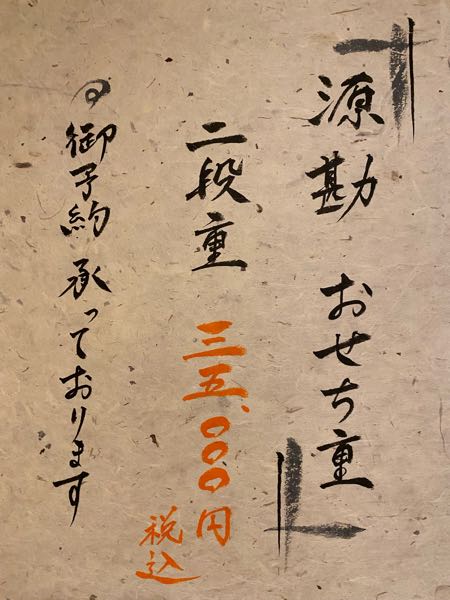 源勘 おせち重
二段重 三五、〇〇〇円
税込
御予約 承っております